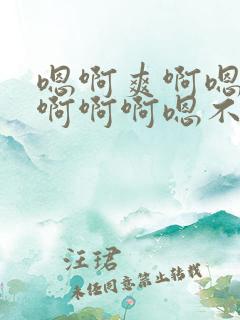 嗯啊爽啊嗯
啊啊啊嗯不
汪珺
未经同意禁止转载